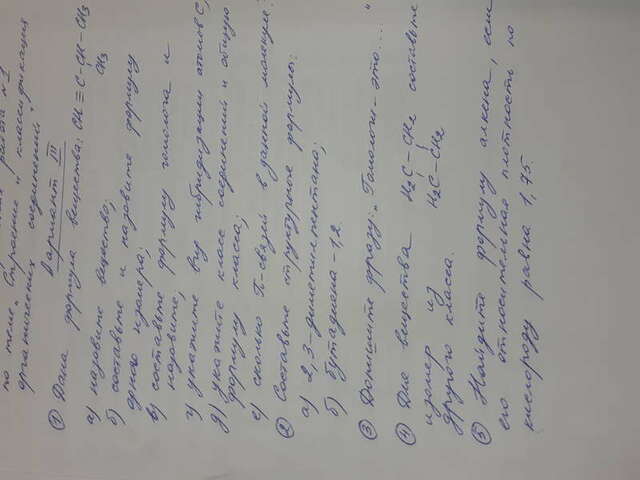 работа №1
по теме „Строение и классификация
органических соединений"
Вариант III
① Дана формула вещества: CH ≡ C - CH - CH3
CH3
а) назовите вещество;
б) составьте и назовите формулу
одного изомера;
в) составьте формулу гомолога и
назовите;
г) укажите вид гибридизации атомов C;
д) укажите класс соединений и общую
формулу класса;
е) сколько П-связей в данной молекуле?
② Составьте структурные формулы:
а) 2,3-диметилпентана;
б) бутадиена-1,2.
③ Допишите фразу: „Гомологи - это..."
④ Для вещества H2C - CH2 составьте
изомер из H2C - CH2
другого класса.
⑤ Найдите формулу алкена, если
его относительная плотность по
кислороду равна 1,75.